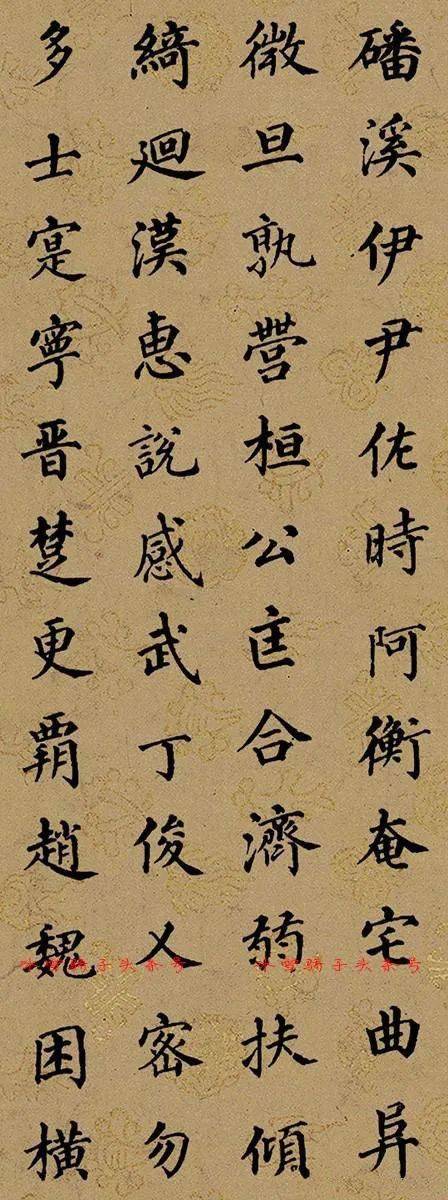 磻溪伊尹佐時阿衡奄宅曲阜
微旦孰營桓公匡合濟弱扶傾
綺迴漢惠說感武丁俊乂密勿
多士寔寧晋楚更覇趙魏困横